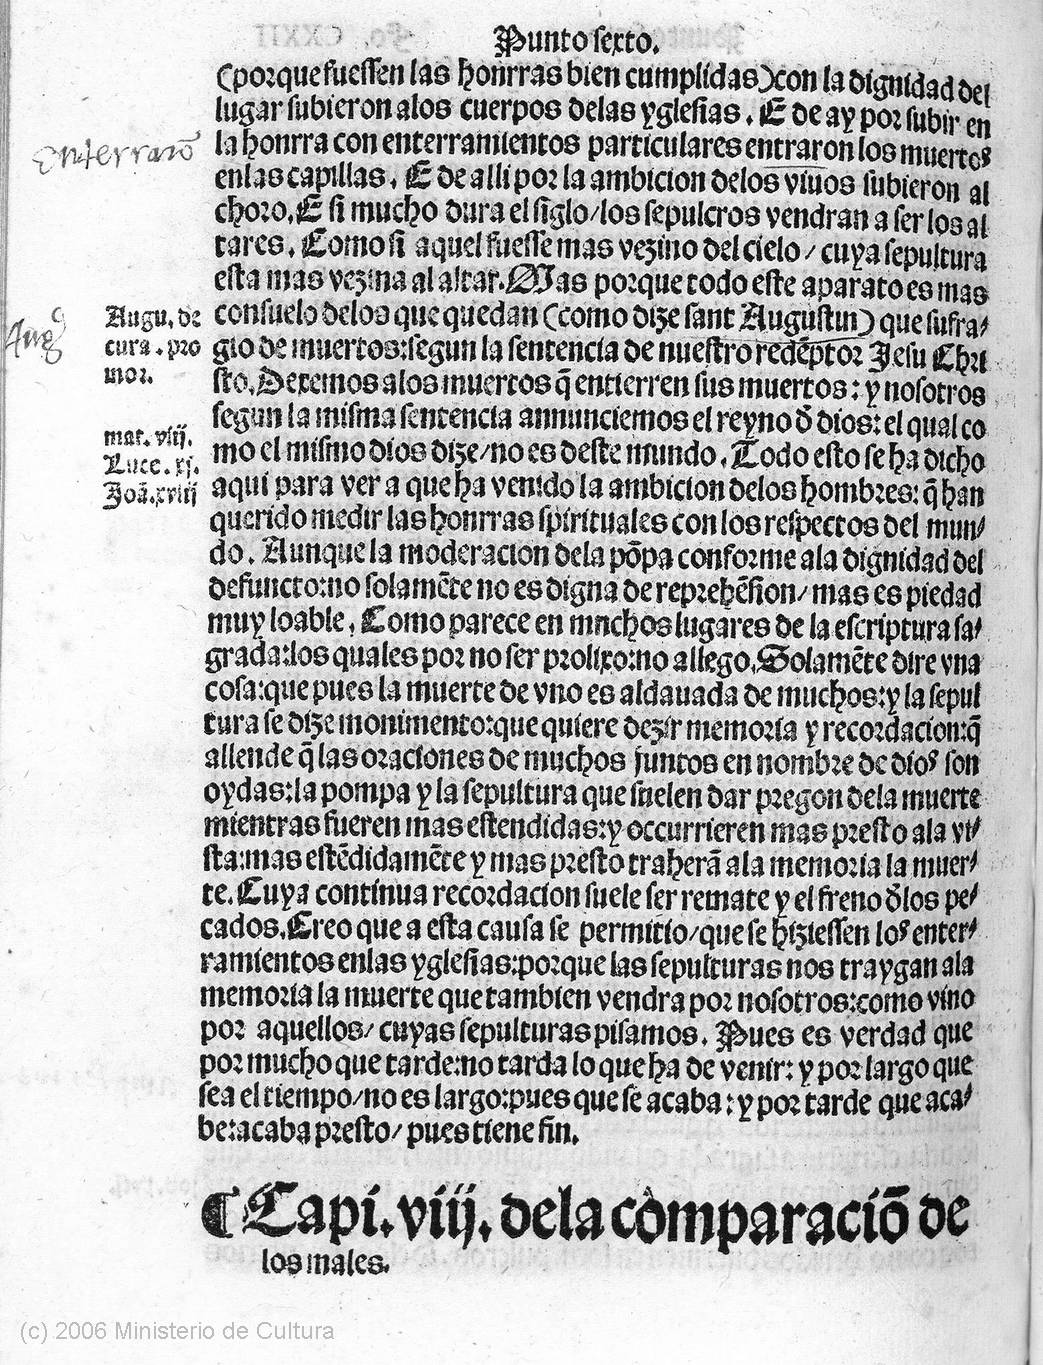 Punto sexto.
(porque fuessen las honrras bien cumplidas) con la dignidad del
lugar subieron alos cuerpos delas yglesias. E de ay por subir en
la honrra con enterramientos particulares entraron los muertos
enlas capillas. E de alli por la ambicion delos viuos subieron al
choro. E si mucho dura el siglo/los sepulcros vendran a ser los al
tares. Como si aquel fuesse mas vezino del cielo/ cuya sepultura
esta mas vezina al altar. Mas porque todo este aparato es mas
consuelo delos que quedan (como dize sant Augustin) que sufra/
gio de muertos:segun la sentencia de nuestro redẽptor Jesu Chri
sto. Dexemos alos muertos q̃ entierren sus muertos: y nosotros
segun la misma sentencia annunciemos el reyno d̃ dios: el qual co
mo el mismo dios dize/no es deste mundo. Todo esto se ha dicho
aqui para ver a que ha venido la ambicion delos hombres: q̃ han
querido medir las honrras spirituales con los respectos del mun/
do. Aunque la moderacion dela põpa conforme ala dignidad del
defuncto:no solamẽte no es digna de reprehẽsion/ mas es piedad
muy loable. Como parece en muchos lugares de la escriptura sa/
grada:los quales por no ser prolixo:no allego. Solamẽte dire vna
cosa:que pues la muerte de vno es aldauada de muchos:y la sepul
tura se dize monimento:que quiere dezir memoria y recordacion:q̃
allende q̃ las oraciones de muchos juntos en nombre de dios son
oydas:la pompa y la sepultura que suelen dar pregon dela muerte
mientras fueren mas estendidas:y occurrieren mas presto ala vi/
sta:mas estẽdidamẽte y mas presto traherã ala memoria la muer/
te. Cuya continua recordacion suele ser remate y el freno d̃los pe/
cados. Creo que a esta causa se permitio/que se hiziessen los enter/
ramientos enlas yglesias:porque las sepulturas nos traygan ala
memoria la muerte que tambien vendra por nosotros:como vino
por aquellos/ cuyas sepulturas pisamos. Pues es verdad que
por mucho que tarde:no tarda lo que ha de venir: y por largo que
sea el tiempo/no es largo:pues que se acaba: y por tarde que aca/
be:acaba presto/ pues tiene fin.
¶ Capi. viij. dela comparaciõ de
los males.
Augu. de
cura. pro
mor.
mat. viij.
Luce. xj.
Joã. xviij
(c) 2006 Ministerio de Cultura